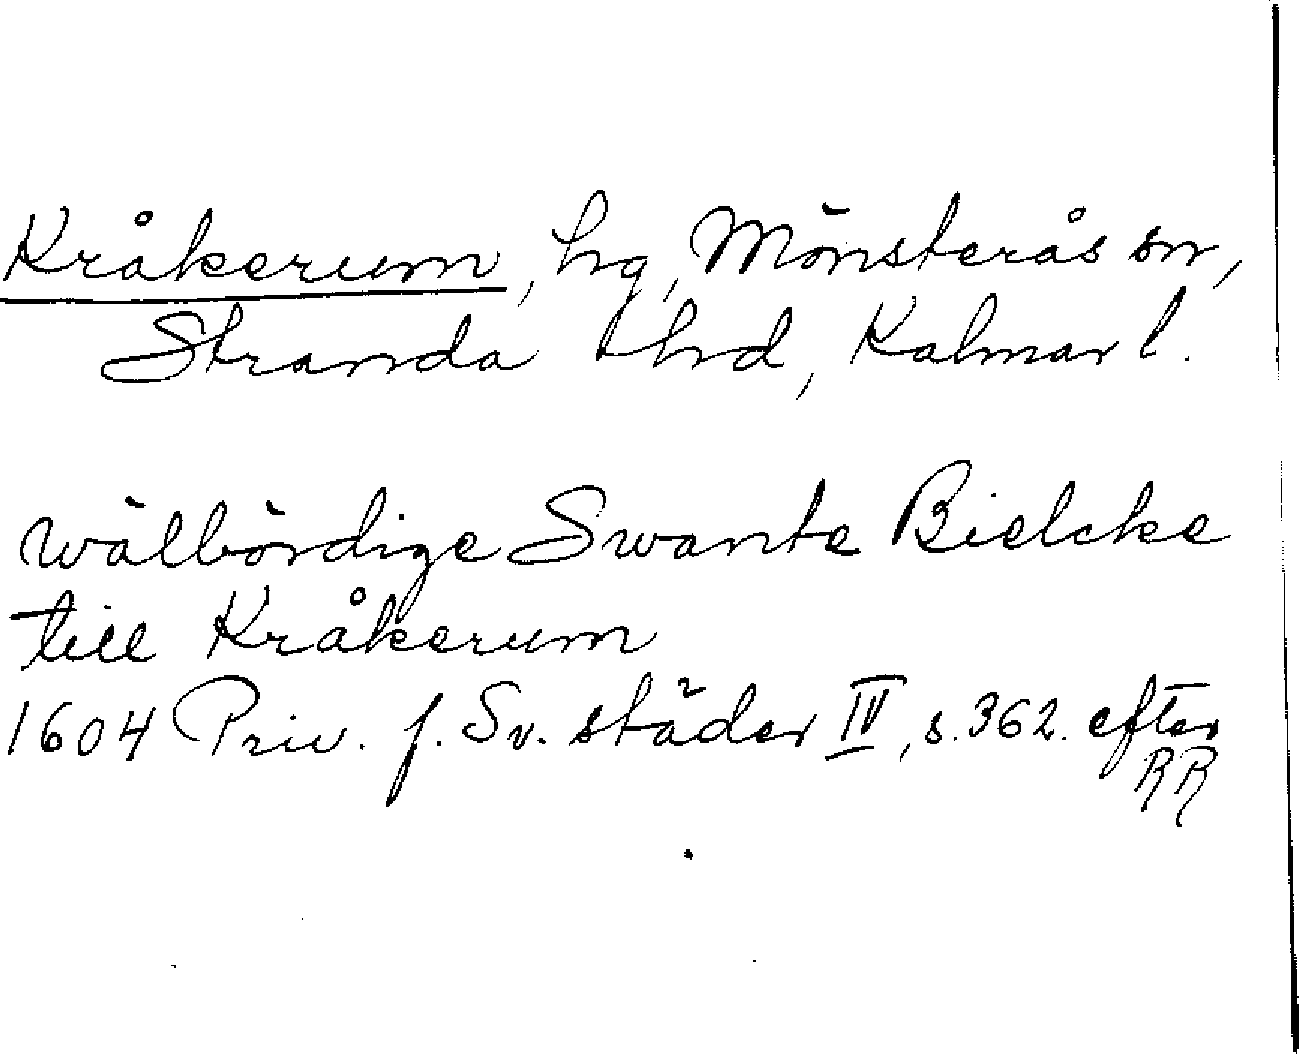 Kråkerum, hg, Mönsterås sn,
Stranda hd, Kalmar l.
wälbördige Swante Bielcke
till Kråkerum
1604 Priv. f. Sv. städer IV, s. 362. efter
RR